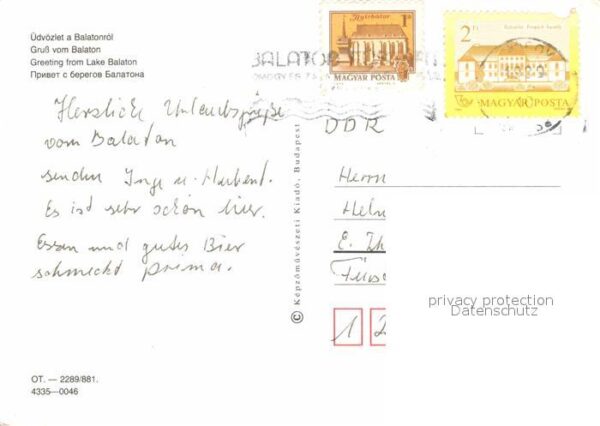 Üdvözlet a Balatonról
Gruß vom Balaton
Greeting from Lake Balaton
Привет с берегов Балатона
Nyírbátor
1 Ft
MAGYAR POSTA
2 Ft
MAGYAR POSTA
BALATON
Herzliche Urlaubsgrüße
vom Balaton
senden Inge u. Hubert.
Es ist sehr schön hier.
Essen und gutes Bier
schmeckt prima.
© Képzőművészeti Kiadó, Budapest
DDR
Herrn
E. Th
12
privacy protection
Datenschutz
OT. — 2289/881.
4335—0046